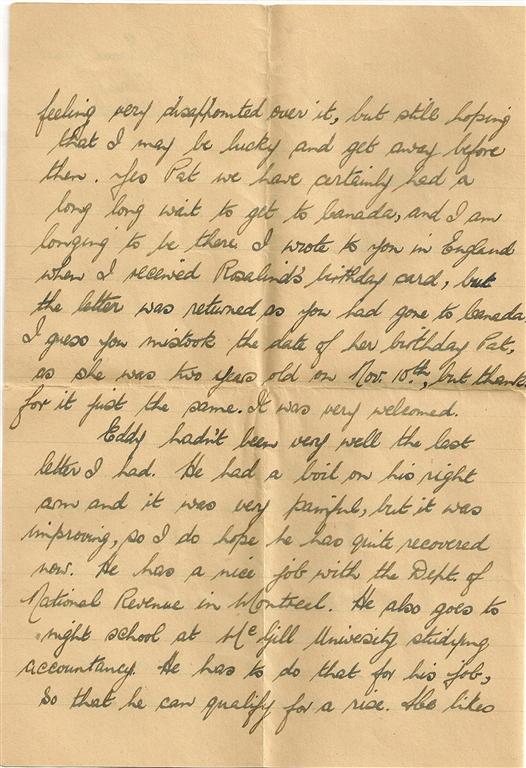 feeling very disappointed over it, but still hoping
that I may be lucky and get away before
then. Yes Pat we have certainly had a
long long wait to get to Canada, and I am
longing to be there. I wrote to you in England
when I received Rosalind's birthday card, but
the letter was returned as you had gone to Canada,
I guess you mistook the date of her birthday Pat,
as she was two years old on Nov. 10th, but thanks
for it just the same. It was very welcomed.
Eddy hadn't been very well the last
letter I had. He had a boil on his right
arm and it was very painful, but it was
improving, so I do hope he has quite recovered
now. He has a nice job with the Dept. of
National Revenue in Montreal. He also goes to
night school at McGill University studying
accountancy. He has to do that for his job,
so that he can qualify for a rise. He likes